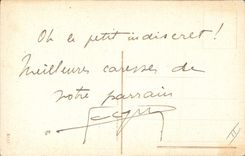 Oh le petit indiscret !
Meilleures caresses de
votre parrain